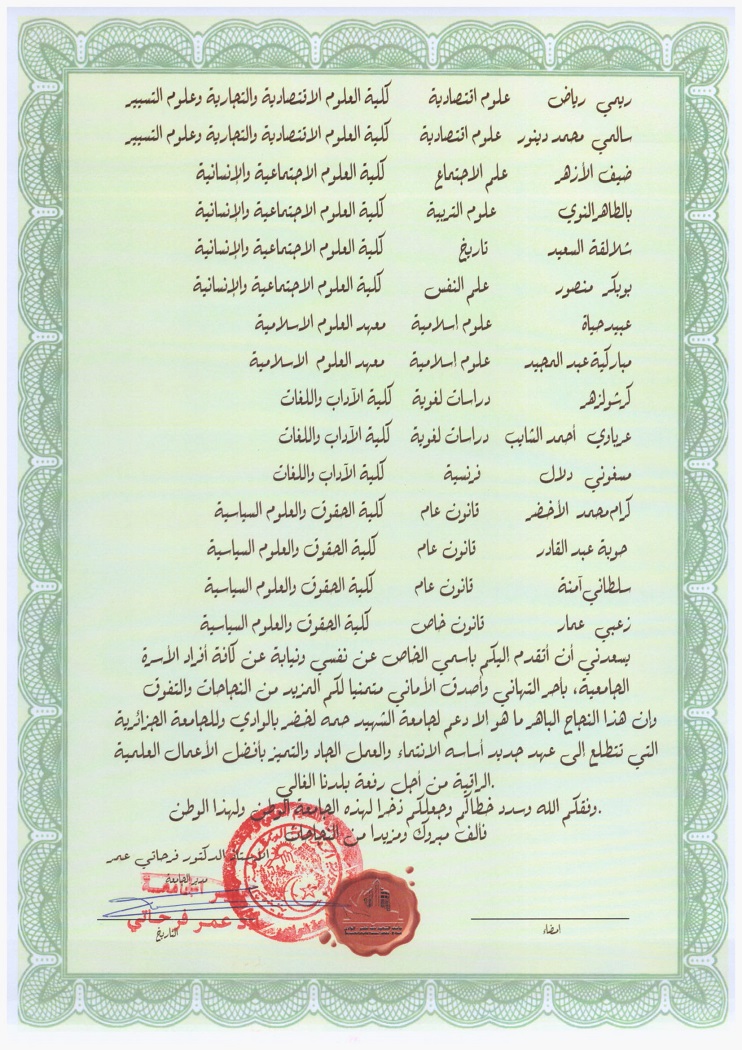 ريمي رياض علوم اقتصادية كلية العلوم الاقتصادية والتجارية وعلوم التسيير
سالمي محمد دينور علوم اقتصادية كلية العلوم الاقتصادية والتجارية وعلوم التسيير
ضيف الأزهر علم الاجتماع كلية العلوم الاجتماعية والإنسانية
بالطاهرالنوي علوم التربية كلية العلوم الاجتماعية والإنسانية
شلالقة السعيد تاريخ كلية العلوم الاجتماعية والإنسانية
بوبكر منصور علم النفس كلية العلوم الاجتماعية والإنسانية
عبيدحياة علوم اسلامية معهد العلوم الاسلامية
مباركيةعبد المجيد علوم اسلامية معهد العلوم الاسلامية
كرشولزهر دراسات لغوية كلية الآداب واللغات
عرباوي أحمد الشايب دراسات لغوية كلية الآداب واللغات
مسغوني دلال فرنسية كلية الآداب واللغات
كرام محمد الأخضر قانون عام كلية الحقوق والعلوم السياسية
حوبة عبد القادر قانون عام كلية الحقوق والعلوم السياسية
سلطاني آمنة قانون عام كلية الحقوق والعلوم السياسية
زعبي عمار قانون خاص كلية الحقوق والعلوم السياسية
يسعدني أن أتقدم اليكم باسمي الخاص عن نفسي ونيابة عن كافة أفراد الأسرة
الجامعية، بأحر التهاني وأصدق الأماني متمنيا لكم المزيد من النجاحات والتفوق
وإن هذا النجاح الباهر ما هو الا دعم لجامعة الشهيد حمه لخضر بالوادي وللجامعة الجزائرية
التي تتطلع الى عهد جديد أساسه الانتماء والعمل الجاد والتميز بأفضل الأعمال العلمية
الراقية من أجل رفعة بلدنا الغالي.
وفقكم الله وسدد خطاكم وجعلكم ذخرا لهذه الجامعة الوطن ولهذا الوطن.
فألف مبروك ومزيدا من النجاحات
الأستاذ الدكتور فرحاتي عمر
مدير الجامعة
مدير الجامعة
أ.د عمر فرحاتي
التاريخ
امضاء